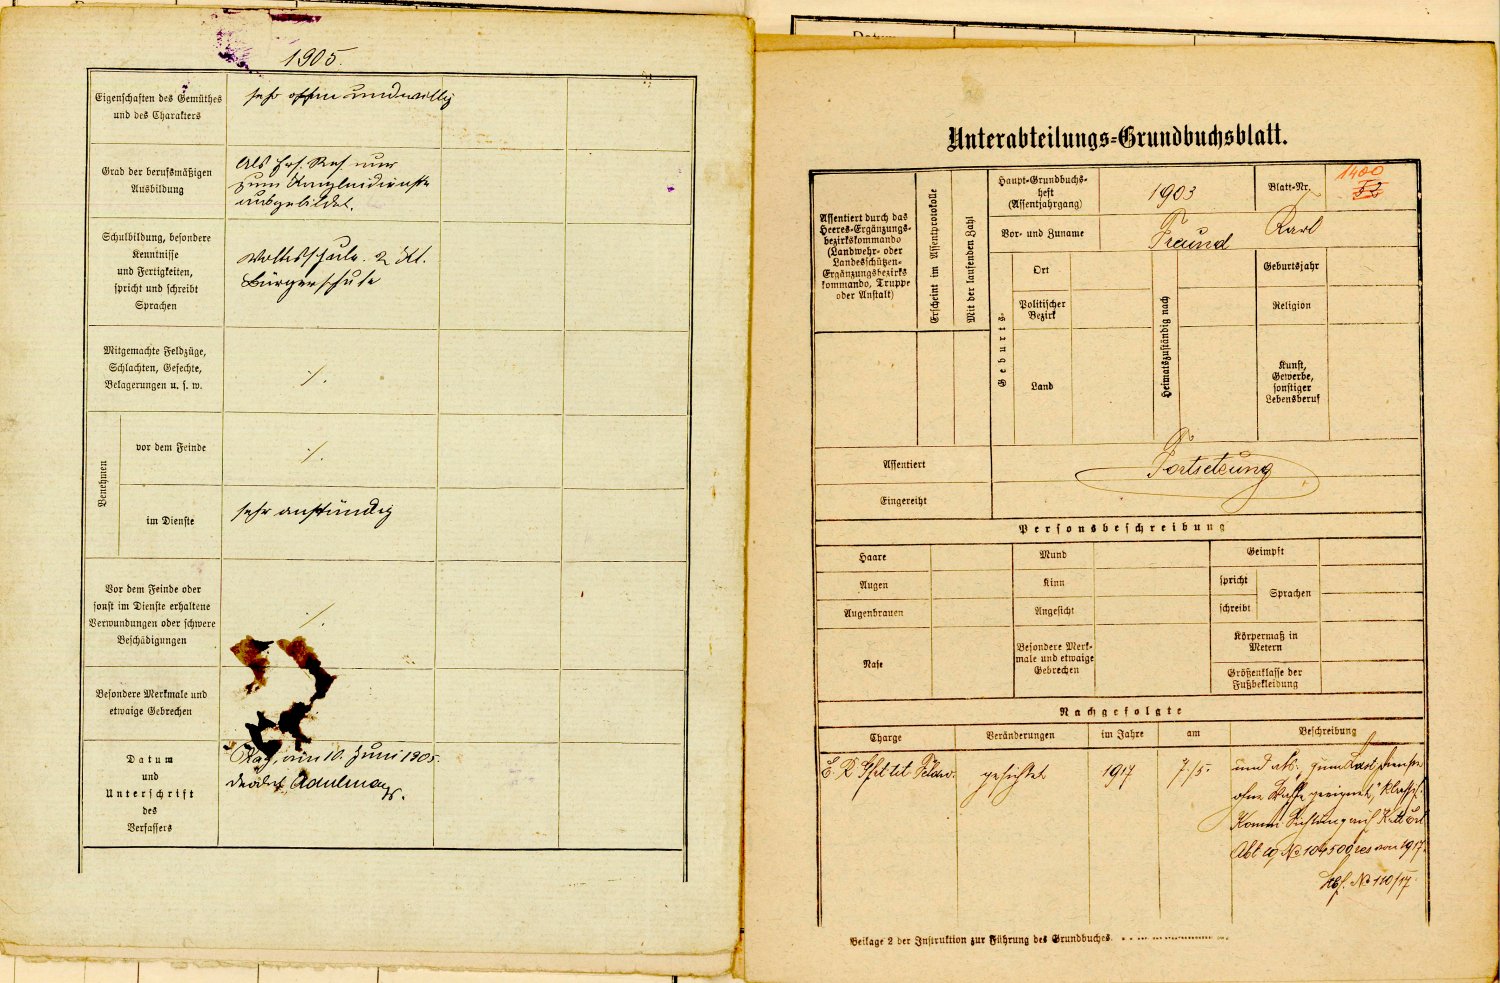 1905.
Eigenschaften des Gemüthes
und des Charakters
sehr offen und willig
Grad der berufsmäßigen
Ausbildung
Als Ers. Res. nur
zum Kanzleidienste
ausgebildet.
Schulbildung, besondere
Kenntnisse
und Fertigkeiten,
spricht und schreibt
Sprachen
Volksschule. 2 Kl.
Bürgerschule
Mitgemachte Feldzüge,
Schlachten, Gefechte,
Belagerungen u. s. w.
./.
Benehmen
vor dem Feinde
./.
im Dienste
sehr anständig
Vor dem Feinde oder
sonst im Dienste erhaltene
Verwundungen oder schwere
Beschädigungen
./.
Besondere Merkmale und
etwaige Gebrechen
Datum
und
Unterschrift
des
Verfassers
Prag, am 10. Juni 1905.
Unterabteilungs-Grundbuchsblatt.
Assentiert durch das
Heeres-Ergänzungs-
bezirkskommando
(Landwehr- oder
Landesschützen-
Ergänzungsbezirks
kommando, Truppe
oder Anstalt)
Erscheint im Assentprotokolle
Mit der laufenden Zahl
Haupt-Grundbuchs-
heft
(Assentjahrgang)
1903
Blatt-Nr.
1400
52
Vor- und Zuname
Freund Karl
Geburts-
Ort
Politischer
Bezirk
Land
Heimatszuständig nach
Geburtsjahr
Religion
Kunst,
Gewerbe,
sonstiger
Lebensberuf
Assentiert
Fortsetzung
Eingereiht
Personsbeschreibung
Haare
Mund
Geimpft
Augen
Kinn
spricht
Sprachen
Augenbrauen
Angesicht
schreibt
Nase
Besondere Merk-
male und etwaige
Gebrechen
Körpermaß in
Metern
Größenklasse der
Fußbekleidung
Nachgefolgte
Charge
Veränderungen
im Jahre
am
Beschreibung
gesichtet
1917
7./5.
und als: "zum
ohne Waffe geeignet," klassif.
Abt 10, No 104500 res von 1917.
No 110/17.
Beilage 2 der Instruktion zur Führung des Grundbuches.